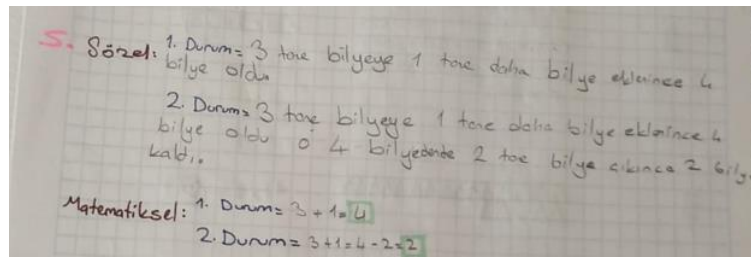 5. Sözel: 1. Durum= 3 tane bilyeye 1 tane daha bilye eklenince 4
bilye oldu.
2. Durum= 3 tane bilyeye 1 tane daha bilye eklenince 4
bilye oldu o 4 bilyedende 2 tae bilye çıkınca 2 bily
kaldı.
Matematiksel: 1. Durum= 3 + 1= 4
2. Durum= 3+1=4-2=2